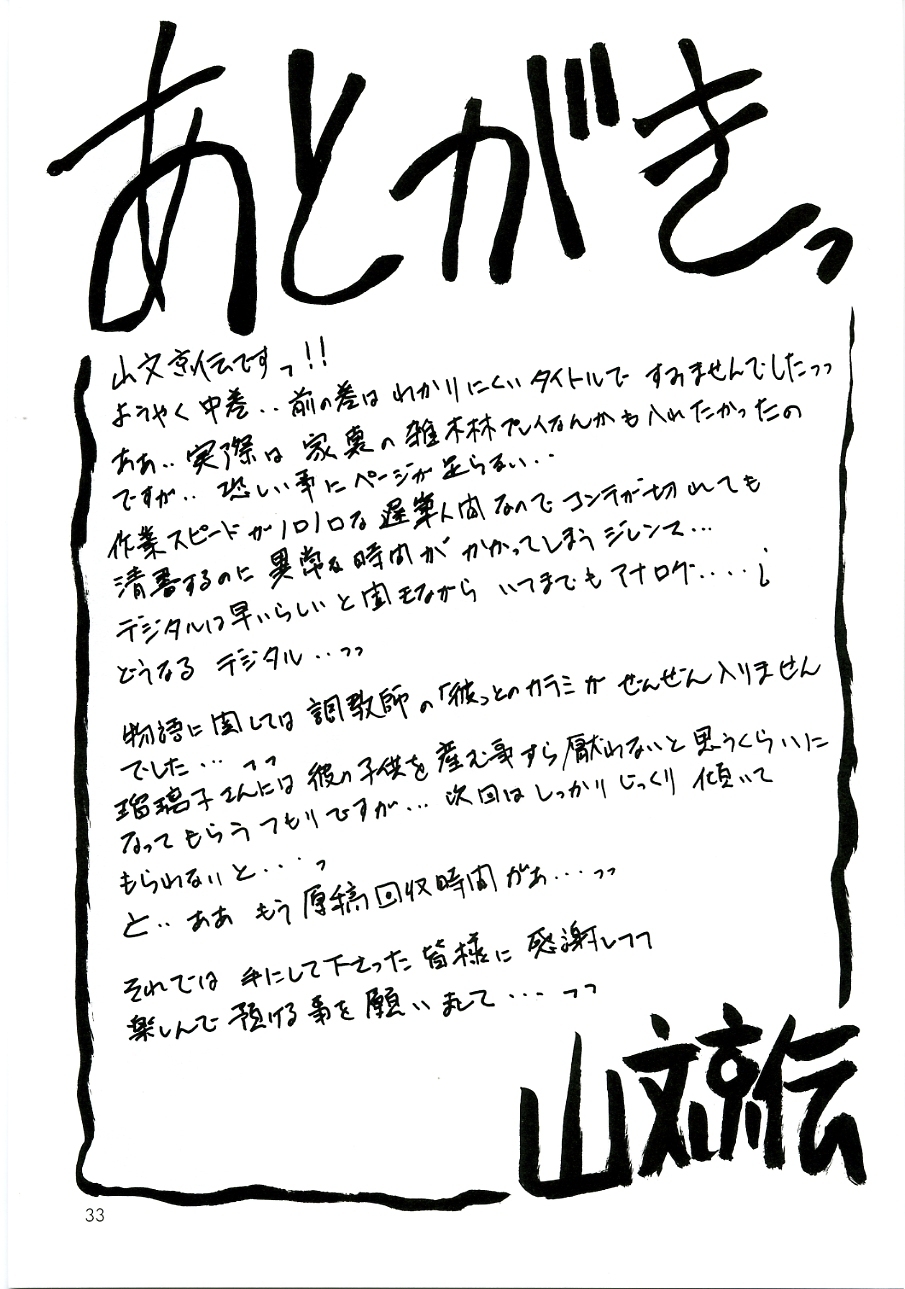 あとがきっ
山文京伝ですっ!!
ようやく中巻‥前の巻はわかりにくいタイトルですみませんでしたっっ
ああ‥実際は家裏の雑木林プレイなんかも入れたかったの
ですが‥恐しい事にページが足らない‥
作業スピードがノロノロな遅筆人間なのでコンテが切れても
清書するのに異常な時間がかかってしまうジレンマ…
デジタルは早いらしいと聞きながらいつまでもアナログ‥‥¡
どうなるデジタル‥っっ
物語に関しては調教師の「彼」とのカラミがぜんぜん入りません
でした…っっ
瑠璃子さんには彼の子供を産む事すら厭わないと思うくらいに
なってもらうつもりですが…次回はしっかりじっくり傾いて
もらわないと…っ
と‥ああもう原稿回収時間がぁ…っっ
それでは手にして下さった皆様に感謝しつつ
楽しんで預ける事を願いまして…っっ
山文京伝
33